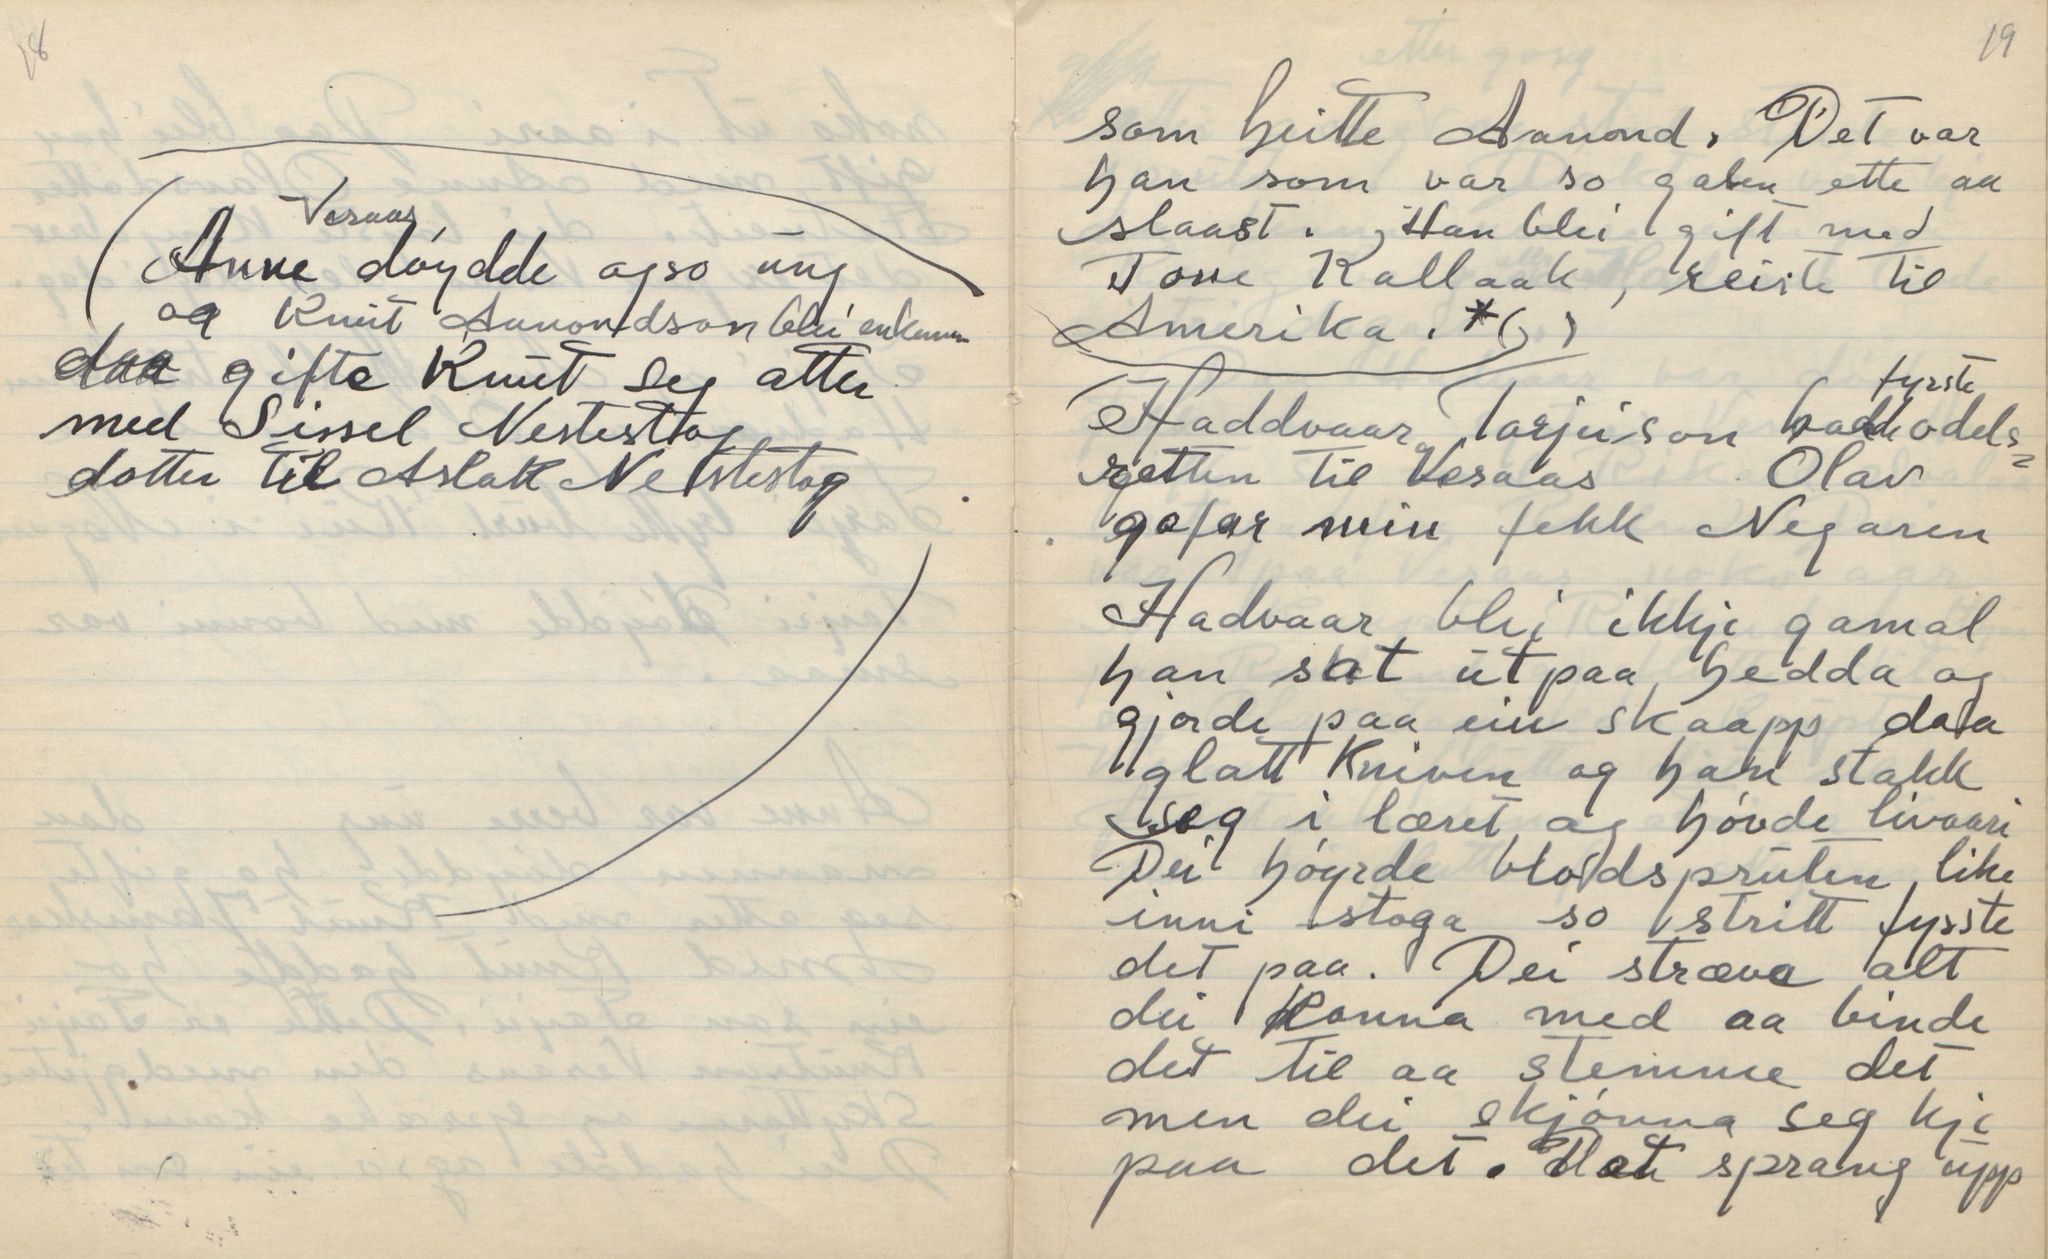 18
Veraas
Anne dóydde ogso ung
og Knut Aanondson blei enkemann
daa gifte Knut seg atter
med Sissel Nestestog
dotter til Aslak Nestestog
19
som heitte Aanond. Det var
han som var so galen ette aa
slaast. Han blei gift med
Tone Kallaak, reiste til
Amerika. *( )
fyrste
Haddvaar Tarjeison hadde odels=
retten til Veraas Olav
gofar min fekk Negaren
Hadvaar blei ikkje gamal
han sat ut paa hedda og
gjorde paa ein skaapp daa
glatt Kniven og han stakk
seg i læret og hóvde livaari
Dei hóyrde blodspruten like
inni stoga so stritt fysste
det paa. Dei stræva alt
dei konna med aa binde
det til aa stemme det
men dei skjónna seg kje
paa det. Han sprang upp